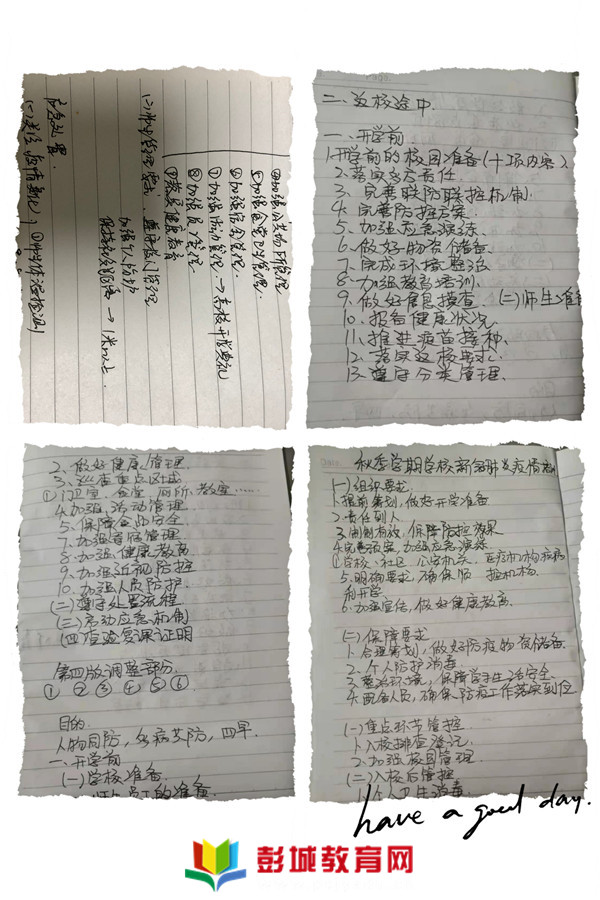 ④加强公共场所管理
⑤加强食堂卫生管理.
⑥加强宿舍管理.
⑦加强活动管理 → 高校开学典礼
⑧加强人员管理.
⑨教员健康教育
加强个人防护
→ 1米以上
应急处置
二、返校途中
一、开学前
1.开学前的校园准备(十项内容)
2.落实多方责任
3.完善联防联控机制.
4.完善防控方案.
5.加强应急演练.
6.做好物资储备
7.完成环境整治
8.加强教育培训.
9.做好信息摸查 (二)师生准备
10.报备健康状况.
11.推进疫苗接种.
12.落实返校要求.
13.遵守分类管理.
2.做好健康管理.
3.巡查重点区域
①门卫室、食堂、厕所、教室……
4.加强活动管理
5.保障食品安全
7.加强宿舍管理
8.加强健康教育
9.加强近视防控
10.加强人员防护.
(二)遵守处置流程
(三)启动应急机制
(四)查验复课证明
第四版调整部分.
① ② ③ ④ ⑤ ⑥
目的.
人物同防,多病共防,四早.
一、开学前
(一)学校准备.
员工的准备.
秋季学期学校新冠肺炎疫情
(一)组织要求
1.提前筹划,做好开学准备
2.责任到人
3.制制有效,保障防控效果
4.完善预案,加强应急演练
①学校、社区、公安机关、医疗机构疾病
5.明确要求,确保顺 控机构.
利开学
6.加强宣传,做好健康教育.
(二)保障要求
1.合理筹划,做好防疫物资储备.
2.个人防护消毒
3.整治环境,保障学生生活安全.
4.配备人员,确保防疫工作落实到位
(一)重点环节管控
1.入校排查登记.
2.加强校园管理.
(二)入校后管控
1.个人卫生消毒
have a good day.
彭城教育网